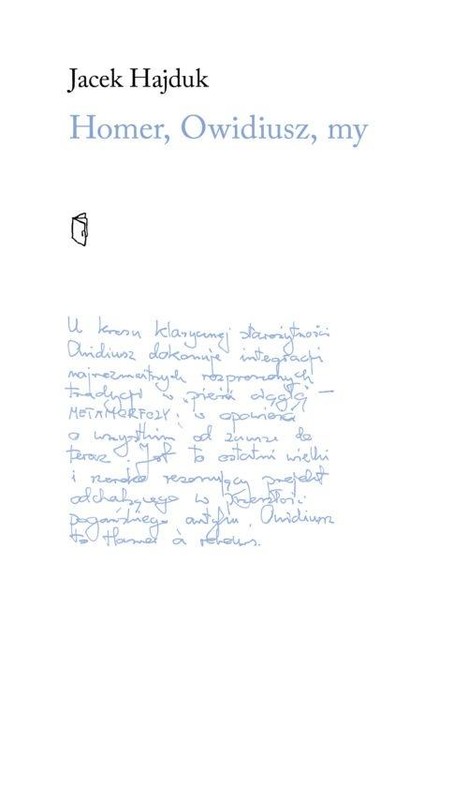 Jacek Hajduk
Homer, Owidiusz, my
U kresu klasycznej starożytności
Owidiusz dokonuje integracji
najrozmaitszych rozproszonych
tradycji w „pieśń ciągłą” –
METAMORFOZY: w opowieść
o wszystkim od zawsze do
teraz. Jest to ostatni wielki
i szeroko rezonujący projekt
odchodzącego w przeszłość
pogańskiego antyku. Owidiusz
to Homer à rebours.